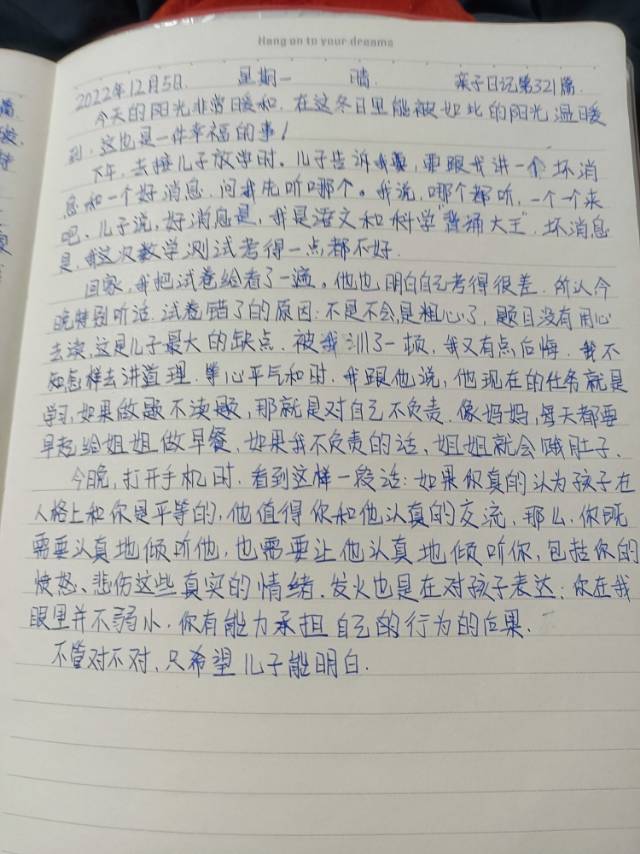 Hang on to your dreams
2022年12月5日 星期一 晴 亲子日记第321篇
今天的阳光非常暖和,在这冬日里能被如此的阳光温暖
到,这也是一件幸福的事!
下午,去接儿子放学时。儿子告诉我,要跟我讲一个坏消
息和一个好消息,问我先听哪个。我说,哪个都听,一个一个来
吧。儿子说,好消息是,我是语文和科学"普通大王",坏消息
是,我这次数学测试考得一点都不好.
回家,我把试卷给看了一遍。他也明白自己考得很差,所以今
晚特别听话.试卷错了的原因:不是不会,是粗心了,题目没有用心
去读,这是儿子最大的缺点.被我训了一顿,我又有点后悔.我不
知怎样去讲道理.等心平气和时.我跟他说,他现在的任务就是
学习,如果做题不读题,那就是对自己不负责.像妈妈,每天都要
早起给姐姐做早餐,如果我不负责的话,姐姐就会饿肚子.
今晚,打开手机时.看到这样一段话:如果你真的认为孩子在
人格上和你是平等的,他值得你和他认真的交流,那么,你既
需要认真地倾听他,也需要让他认真地倾听你,包括你的
愤怒、悲伤这些真实的情绪.发火也是在对孩子表达:你在我
眼里并不弱小,你有能力承担自己的行为的后果.
不管对不对,只希望儿子能明白.